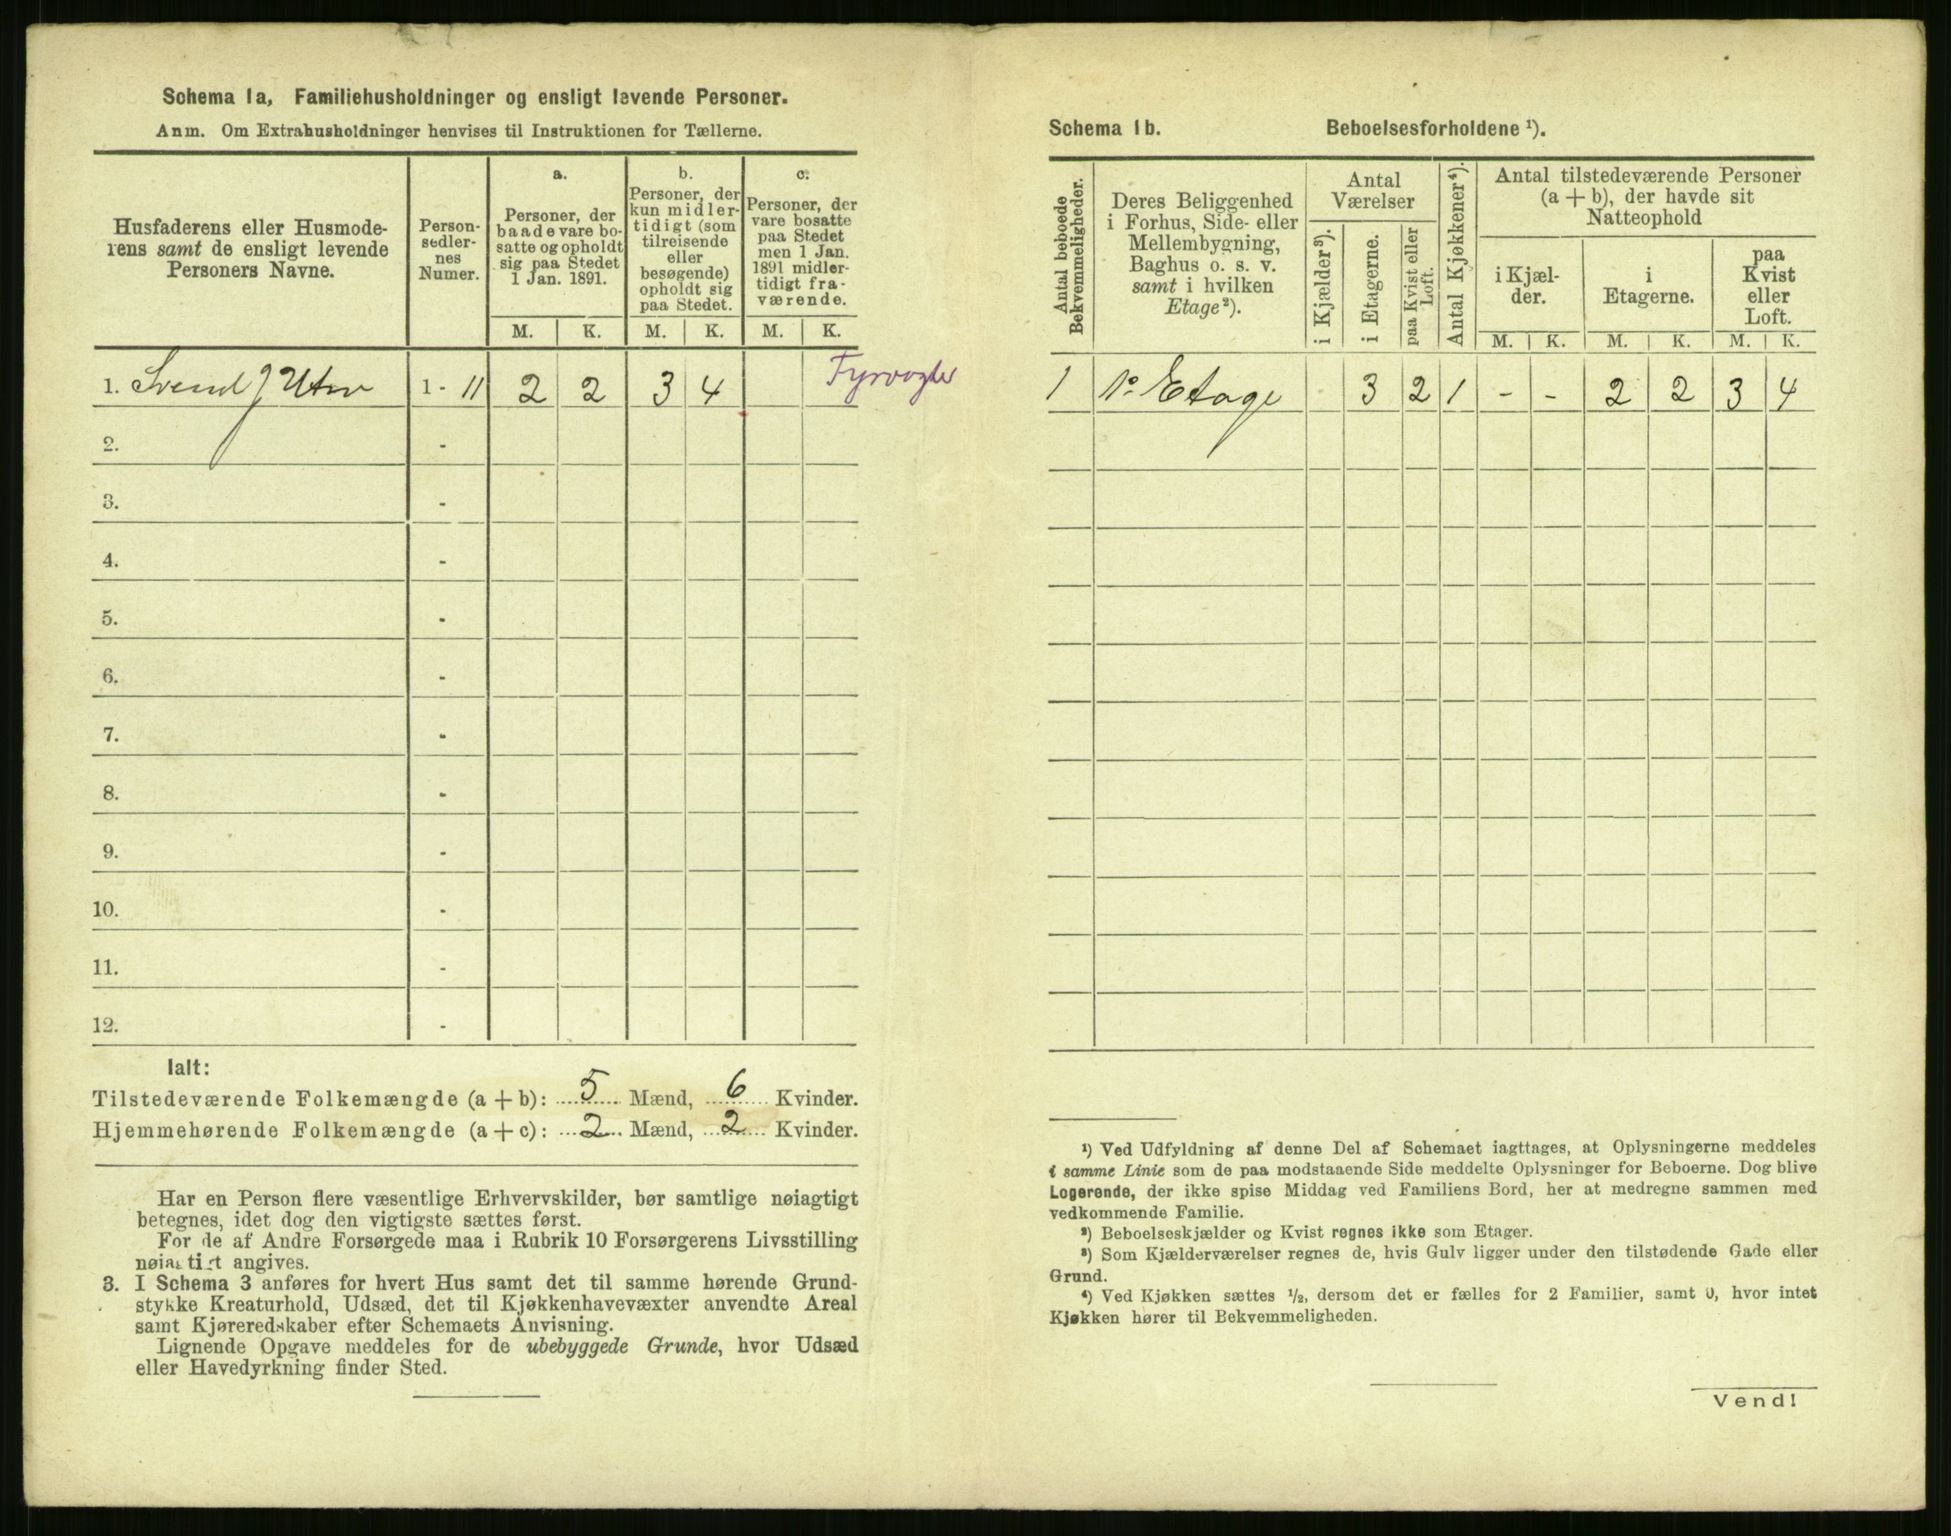 Schema 1a, Familiehusholdninger og ensligt levende Personer.
Anm. Om Extrahusholdninger henvises til Instruktionen for Tællerne.
Husfaderens eller Husmode-
rens samt de ensligt levende
Personers Navne.
Person-
sedler-
nes
Numer.
a.
Personer, der
baade vare bo-
satte og opholdt
sig paa Stedet
1 Jan. 1891.
b.
Personer, der
kun midler-
tidigt (som
tilreisende
eller
besøgende)
opholdt sig
paa Stedet.
c.
Personer, der
vare bosatte
paa Stedet
men 1 Jan.
1891 midler-
tidigt fra-
værende.
M. K. M. K. M. K.
1. Svend J 1 - 11 2 2 3 4 Fyrvogter
2. -
3. -
4. -
5. -
6. -
7. -
8. -
9. -
10. -
11. -
12. -
Ialt:
Tilstedeværende Folkemængde (a + b): 5 Mænd, 6 Kvinder.
Hjemmehørende Folkemængde (a + c): 2 Mænd, 2 Kvinder.
Har en Person flere væsentlige Erhvervskilder, bør samtlige nøiagtigt
betegnes, idet dog den vigtigste sættes først.
For de af Andre Forsørgede maa i Rubrik 10 Forsørgerens Livsstilling
nøiagtigt angives.
3. I Schema 3 anføres for hvert Hus samt det til samme hørende Grund-
stykke Kreaturhold, Udsæd, det til Kjøkkenhavevæxter anvendte Areal
samt Kjøreredskaber efter Schemaets Anvisning.
Lignende Opgave meddeles for de ubebyggede Grunde, hvor Udsæd
eller Havedyrkning finder Sted.
Schema 1b. Beboelsesforholdene ¹).
Antal beboede
Bekvemmeligheder.
Deres Beliggenhed
i Forhus, Side- eller
Mellembygning,
Baghus o. s. v.
samt i hvilken
Etage²).
Antal
Værelser
i Kjælder³).
i Etagerne.
paa Kvist eller
Loft.
Antal Kjøkkener⁴).
Antal tilstedeværende Personer
(a + b), der havde sit
Natteophold
i Kjæl-
der.
i
Etagerne.
paa
Kvist
eller
Loft.
M. K. M. K. M. K.
1 1ᵒ Etage - 3 2 1 - - 2 2 3 4
¹) Ved Udfyldning af denne Del af Schemaet iagttages, at Oplysningerne meddeles
i samme Linie som de paa modstaaende Side meddelte Oplysninger for Beboerne. Dog blive
Logerende, der ikke spise Middag ved Familiens Bord, her at medregne sammen med
vedkommende Familie.
²) Beboelseskjælder og Kvist regnes ikke som Etager.
³) Som Kjælderværelser regnes de, hvis Gulv ligger under den tilstødende Gade eller
Grund.
⁴) Ved Kjøkken sættes ½, dersom det er fælles for 2 Familier, samt 0, hvor intet
Kjøkken hører til Bekvemmeligheden.
Vend!